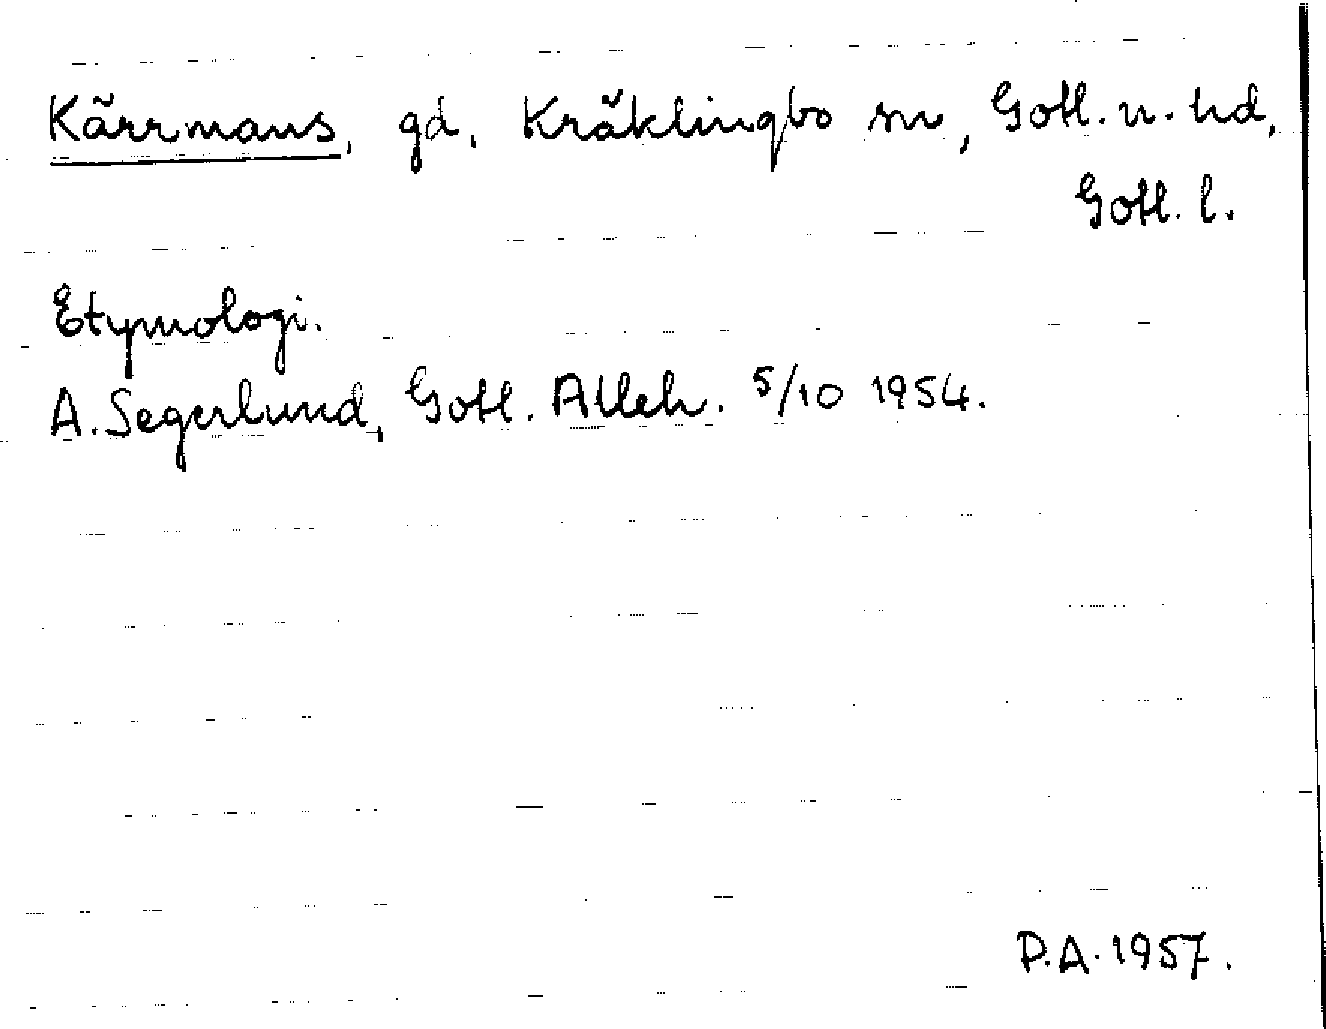 Kärrmans, gd, Kräklingbo sn, Gotl. n. hd,
Gotl. l.
Etymologi.
A. Segerlund, Gotl. Alleh. 5/10 1954.
P.A. 1957.